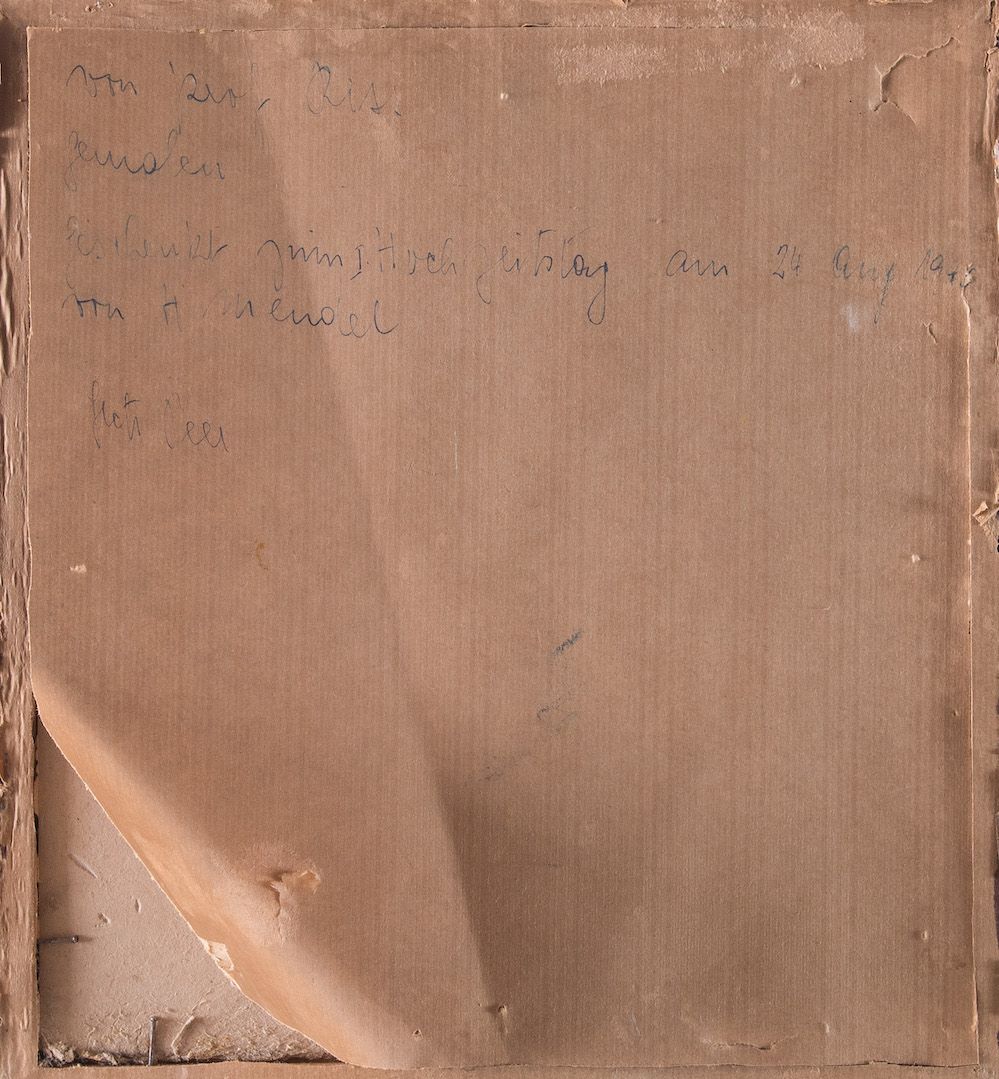 von Prof. Ris.
gemalen
Geschenkt zum I Hochzeitstag am 24 Aug
von H Mendel